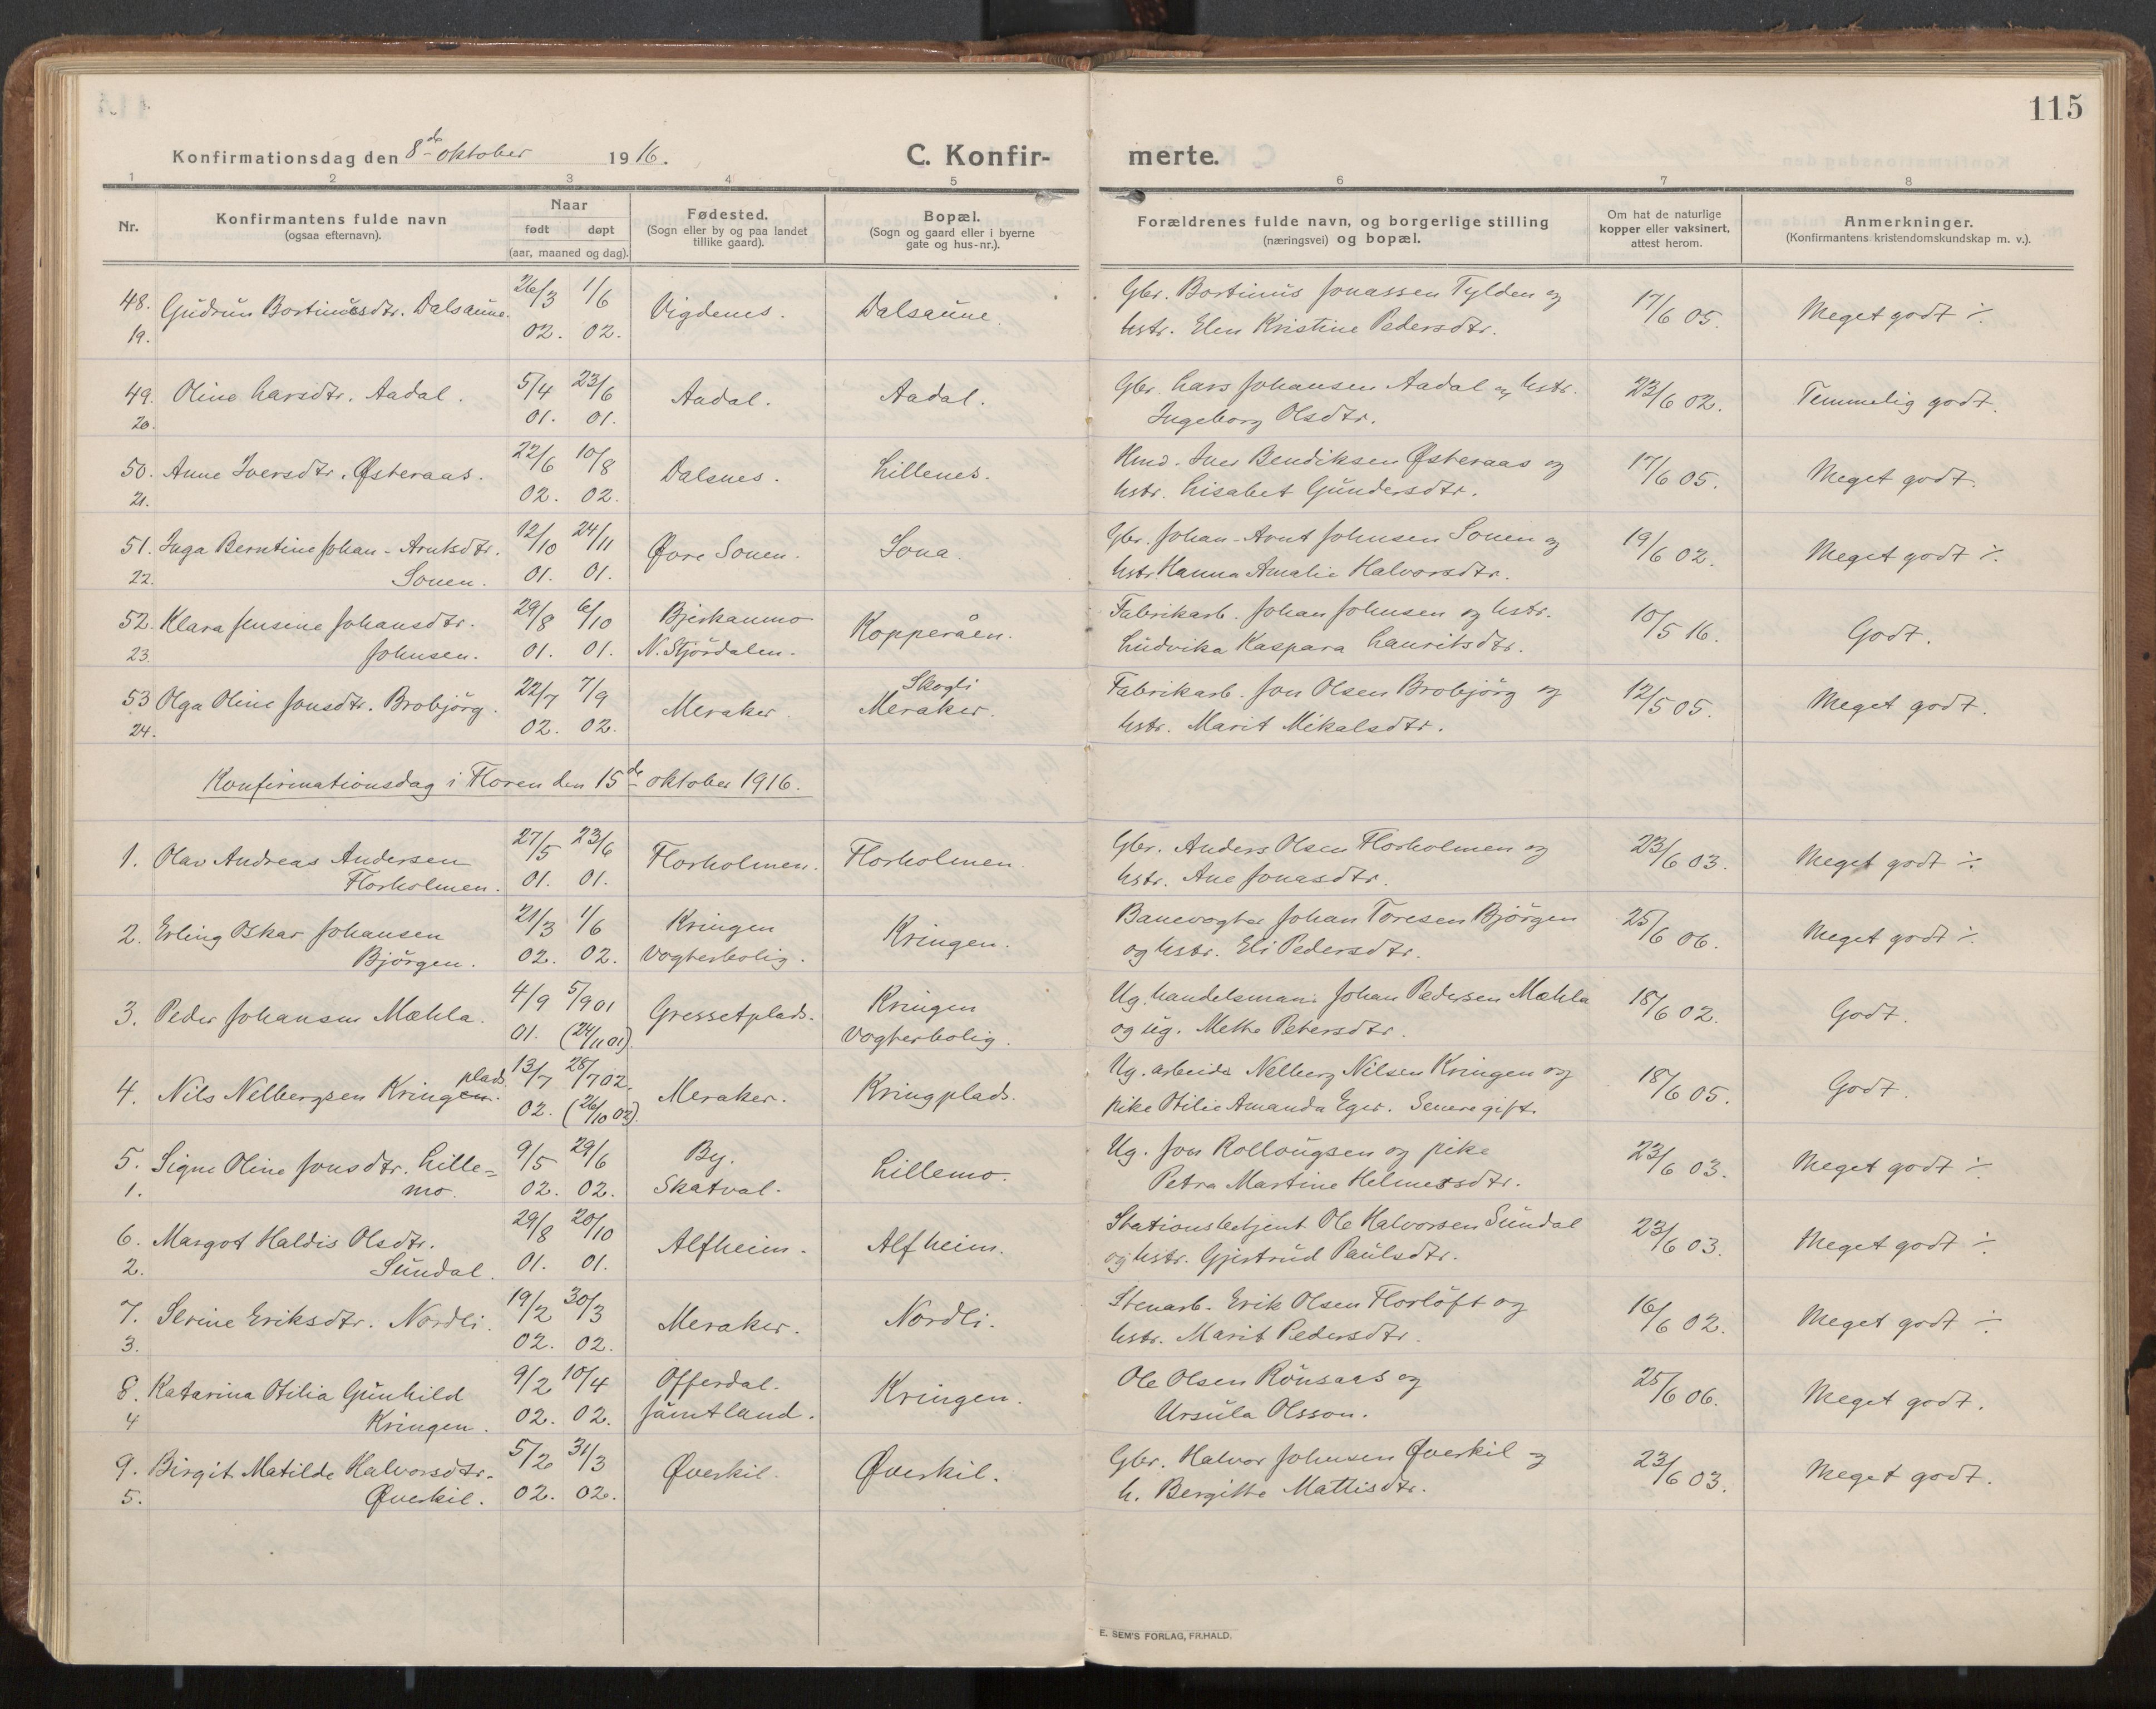 115
Konfirmationsdag den 8de oktober 1916.
C. Konfir-
merte.
1 2 3 4 5 6 7 8
Nr.
Konfirmantens fulde navn
(ogsaa efternavn).
Naar
født døpt
(aar, maaned og dag).
Fødested.
(Sogn eller by og paa landet
tillike gaard).
Bopæl.
(Sogn og gaard eller i byerne
gate og hus-nr.).
Forældrenes fulde navn, og borgerlige stilling
(næringsvei) og bopæl.
Om hat de naturlige
kopper eller vaksinert,
attest herom.
Anmerkninger.
(Konfirmantens kristendomskundskap m. v.).
48. Gudrun Bortinusdtr. Dalsaune. 26/3 1/6 Vigdenes. Dalsaune. Gbr. Bortinus Jonassen Tylden og 17/6 05. Meget godt ./.
19. 02. 02. hstr. Elen Kristine Pedersdtr.
49. Oline Larsdtr. Aadal. 5/4 23/6 Aadal. Aadal. Gbr. Lars Johansen Aadal og hstr. 23/6 02. Temmelig godt.
20. 01. 01. Ingeborg Olsdtr.
50. Anne Iversdtr. Østeraas. 22/6 10/8 Dalsnes. Lillenes. Hmd. Iver Bendiksen Østeraas og 17/6 05. Meget godt.
21. 02. 02. hstr. Lisabet Gundersdtr.
51. Inga Berntine Johan-Arntsdtr. 12/10 24/11 Øvre Sonen. Sona. Gbr. Johan-Arnt Johnsen Sonen og 19/6 02. Meget godt ./.
22. Sonen. 01. 01. hstr. Hanna Amalie Halvorsdtr.
52. Klara Jensine Johansdtr. 29/8 6/10 Bjerkanmo Kopperåen. Fabrikarb. Johan Johnsen og hstr. 10/5 16. Godt.
23. Johnsen. 01. 01. N. Stjørdalen. Ludvika Kaspara Lauritsdtr.
53 Olga Oline Jonsdtr. Brobjörg. 22/7 7/9 Meraker. Skogli Meraker. Fabrikarb. Jon Olsen Brobjörg og 12/5 05. Meget godt.
24. 02. 02. hstr. Marit Mikalsdtr.
Konfirmationsdag i Floren den 15de oktober 1916.
1. Olav Andreas Andersen 27/5 23/6 Florholmen. Florholmen. Gbr. Anders Olsen Florholmen og 23/6 03. Meget godt ./.
Florholmen. 01. 01. hstr. Ane Jonasdtr.
2. Erling Oskar Johansen 21/3 1/6 Kringen Kringen. Banevogter Johan Toresen Bjørgen 25/6 06. Meget godt ./.
Bjørgen. 02. 02. Vogterbolig. og hstr. Eli Pedersdtr.
3. Peder Johansen Mæhla. 4/9 5/9 01 Gressetplads. Kringen Ug. handelsmann Johan Pedersen Mæhla 18/6 02. Godt.
01. (24/11 01). Vogterbolig. og ug. Mette Petersdtr.
4. Nils Nelbergsen Kringen. plads. 13/7 28/7 02. Meraker. Kringplads. Ug. arbeider Nelberg Nilsen Kringen og 18/6 05. Godt.
02. (26/10 02). pike Otilie Amanda Eger. Senere gift.
5. Signe Oline Jonsdtr. Lille= 9/5 29/6 By. Lillemo. Ug. Jon Rollougsen og pike 23/6 03. Meget godt ./.
1. mo. 02. 02. Skatval. Petra Martine Helmersdtr.
6. Margot Haldis Olsdtr. 29/8 20/10 Alfheim. Alfheim. Stationsbetjent Ole Halvorsen Sundal 23/6 03. Meget godt ./.
2. Sundal. 01. 01. og hstr. Gjertrud Paulsdtr.
7. Serine Eriksdtr. Nordli. 19/2 30/3 Meraker. Nordli. Stenarb. Erik Olsen Florløft og 16/6 02. Meget godt ./.
3. 02. 02. hstr. Marit Pedersdtr.
8. Katarina Otilia Gunhild 9/2 10/4 Offerdal. Kringen. Ole Olsen Rönsaas og 25/6 06. Meget godt.
4 Kringen. 02. 02. Jämtland. Ursula Olsson.
9. Birgit Matilde Halvorsdtr. 5/2 31/3 Øverkil. Øverkil. Gbr. Halvor Johnsen Øverkil og 23/6 03. Meget godt.
5. Øverkil. 02. 02. h. Bergitte Mattisdtr.
E. SEM'S FORLAG, FR.HALD.